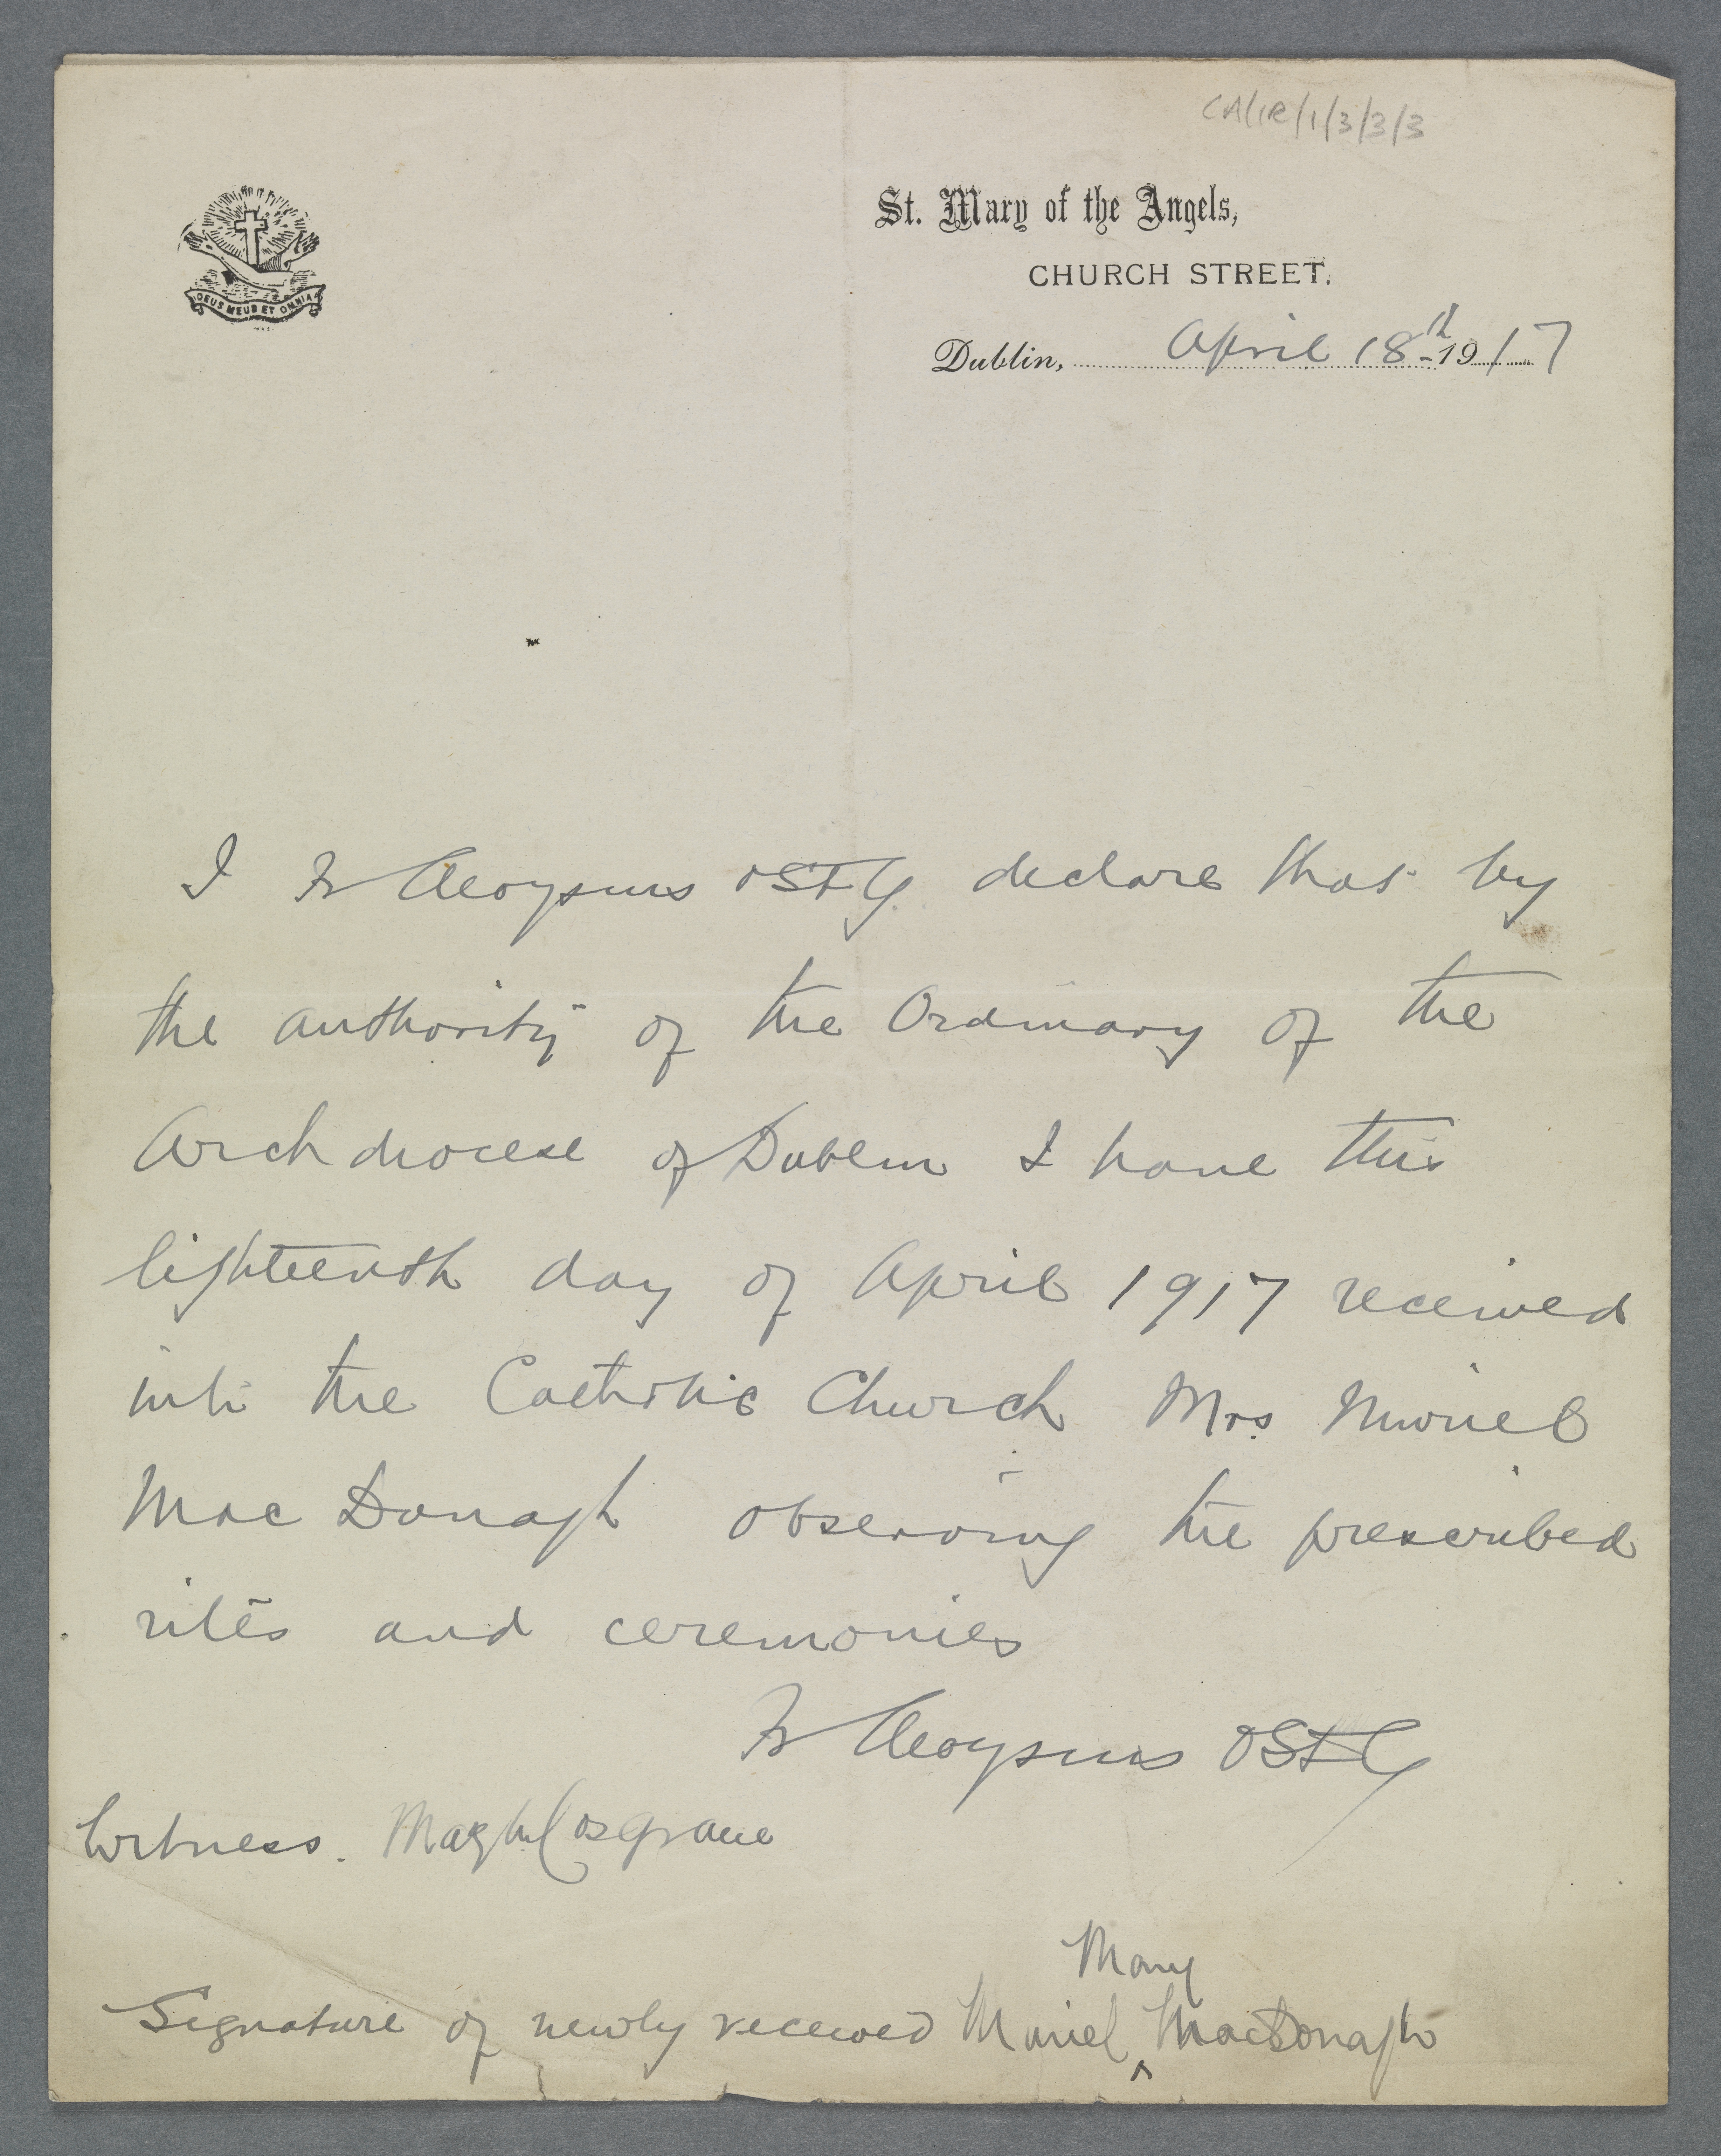 CA/IR/1/3/3/3
DEUS MEUS ET OMNIA
St. Mary of the Angels,
CHURCH STREET.
Dublin, April 18th 1917
I Fr Aloysius OSFC declare that by
the authority of the Ordinary of the
Archdiocese of Dublin I have this
eighteenth day of April 1917 received
into the Catholic Church Mrs Muriel
Mac Donagh observing the prescribed
rites and ceremonies
Fr Aloysius OSFC
Witness. Cosgrave
Mary
Signature of newly received Muriel ^ MacDonagh